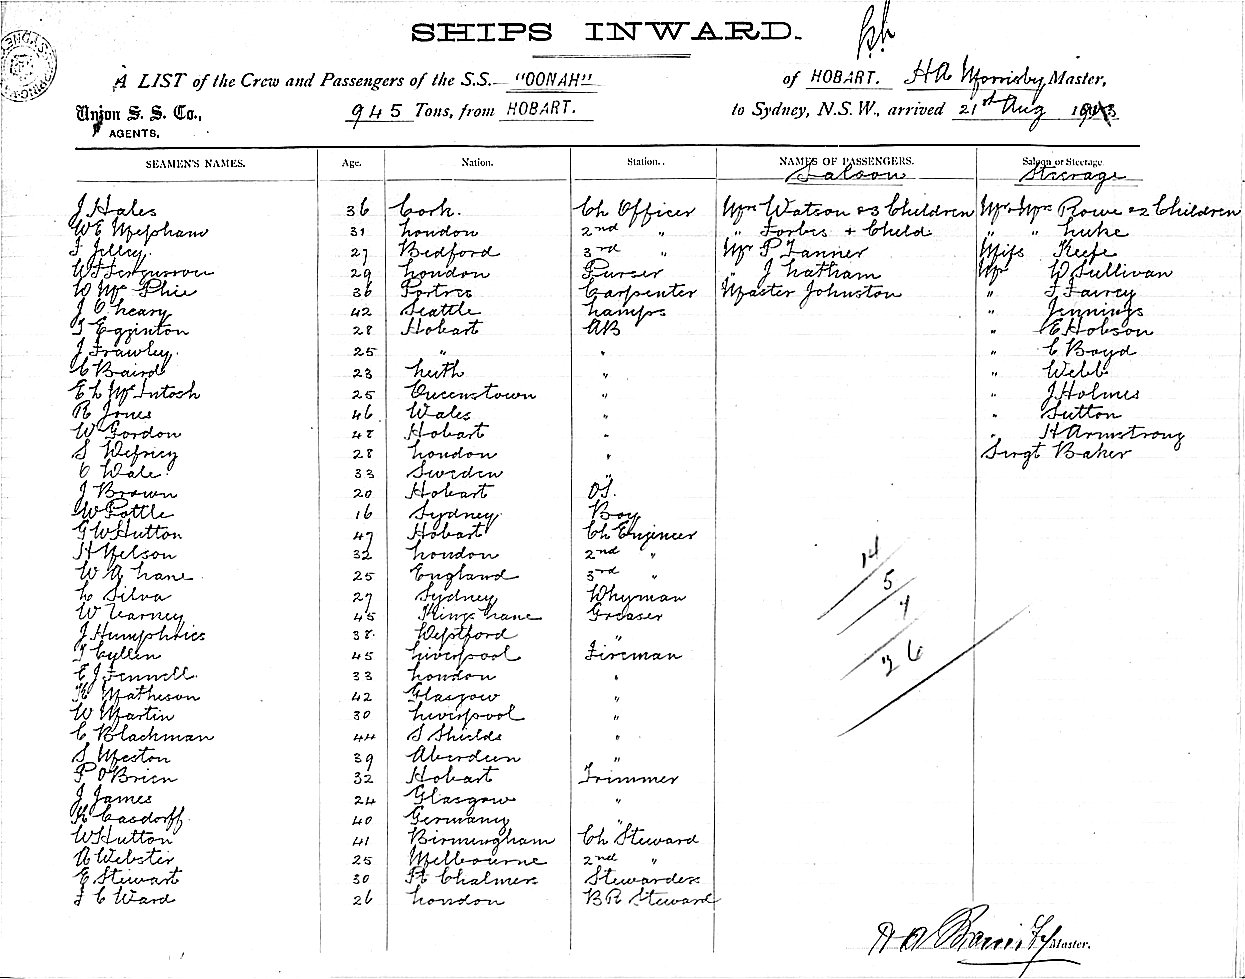 SHIPS INWARD.
A LIST of the Crew and Passengers of the S.S. "OONAH" of HOBART. H A Morrisby Master,
Union S. S. Co., AGENTS, 945 Tons, from HOBART. to Sydney, N.S.W., arrived 21st Aug
SEAMEN'S NAMES. Age. Nation. Station. NAMES OF PASSENGERS. Saloon or Steerage
Saloon Steerage
J Hales 36 Cork. Ch Officer Mrs Watson & 3 Children Mr & Mrs Rowe & 2 Children
W E Mepham 31 London 2nd " " Forbes & Child " " Luke
F Jilley 27 Bedford 3rd " Mr P Tanner Miss Keefe
W J Fergusson 29 London Purser " J Latham Mr W Sullivan
W McPhie 36 Carpenter Master Johnston " F Fairey
J O'Leary 42 Seattle Lamps " Jennings
T Egginton 28 Hobart AB " E Hobson
J Frawley. 25 " " " C Boyd
C Baird 23 Leith " " Webb
E L McIntosh 25 Queenstown " " J Holmes
R Jones 46 Wales " " Sutton
W Gordon 48 Hobart " " H Armstrong
S 28 London " Sergt Baker
C Wale 33 Sweden "
J Brown 20 Hobart OS.
W Pattle 16 Sydney Boy
G W Hutton 47 Hobart Ch Engineer
H Nelson 32 London 2nd "
W A Lane. 25 England 3rd "
L Silva 27 Sydney Whyman
W Varney 45 Kings Lane Greaser
J Humphries 38. Westford "
T Cyllen 45 Liverpool Fireman
E J Fennell. 33 London "
K Matheson 42 Glasgow "
W Martin 30 Liverpool "
C Blackman 44 S Shields "
S Weston 39 Aberdeen "
P O'Brien 32 Hobart Trimmer
J James 24 Glasgow "
K Casdorff. 40 Germany "
W Hutton 41 Birmingham Ch Steward
A Webster 25 Melbourne 2nd "
E Stewart 30 Pt Chalmers Stewardess
F C Ward 26 London B R Steward
14
5
7
26
Master.